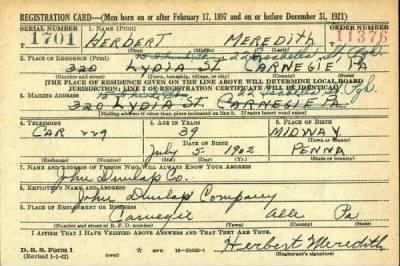 REGISTRATION CARD—(Men born on or after February 17, 1897 and on or before December 31, 1921)
SERIAL NUMBER 1. NAME (Print) ORDER NUMBER
1701 HERBERT MEREDITH 11376
2. PLACE OF RESIDENCE (Print)
320 LYDIA ST. CARNEGIE PA
(Number and street) (Town, township, village, or city) (County) (State)
[THE PLACE OF RESIDENCE GIVEN ON THE LINE ABOVE WILL DETERMINE LOCAL BOARD
JURISDICTION; LINE 2 OF REGISTRATION CERTIFICATE WILL BE IDENTICAL]
3. MAILING ADDRESS
320 LYDIA ST. CARNEGIE PA
[Mailing address if other than place indicated on line 2. If same insert word same]
4. TELEPHONE 5. AGE IN YEARS 6. PLACE OF BIRTH
CAR 229 39 MIDWAY
DATE OF BIRTH (Town or county)
July 5 1902 PENNA
(Exchange) (Number) (Mo.) (Day) (Yr.) (State or country)
7. NAME AND ADDRESS OF PERSON WHO WILL ALWAYS KNOW YOUR ADDRESS
John Dunlap Co.
8. EMPLOYER'S NAME AND ADDRESS
John Dunlap Company
9. PLACE OF EMPLOYMENT OR BUSINESS
Carnegie Alle Pa
(Number and street or R. F. D. number) (Town) (County) (State)
I AFFIRM THAT I HAVE VERIFIED ABOVE ANSWERS AND THAT THEY ARE TRUE.
D. S. S. Form 1
(Revised 1-1-42) Herbert Meredith
(Registrant's signature)